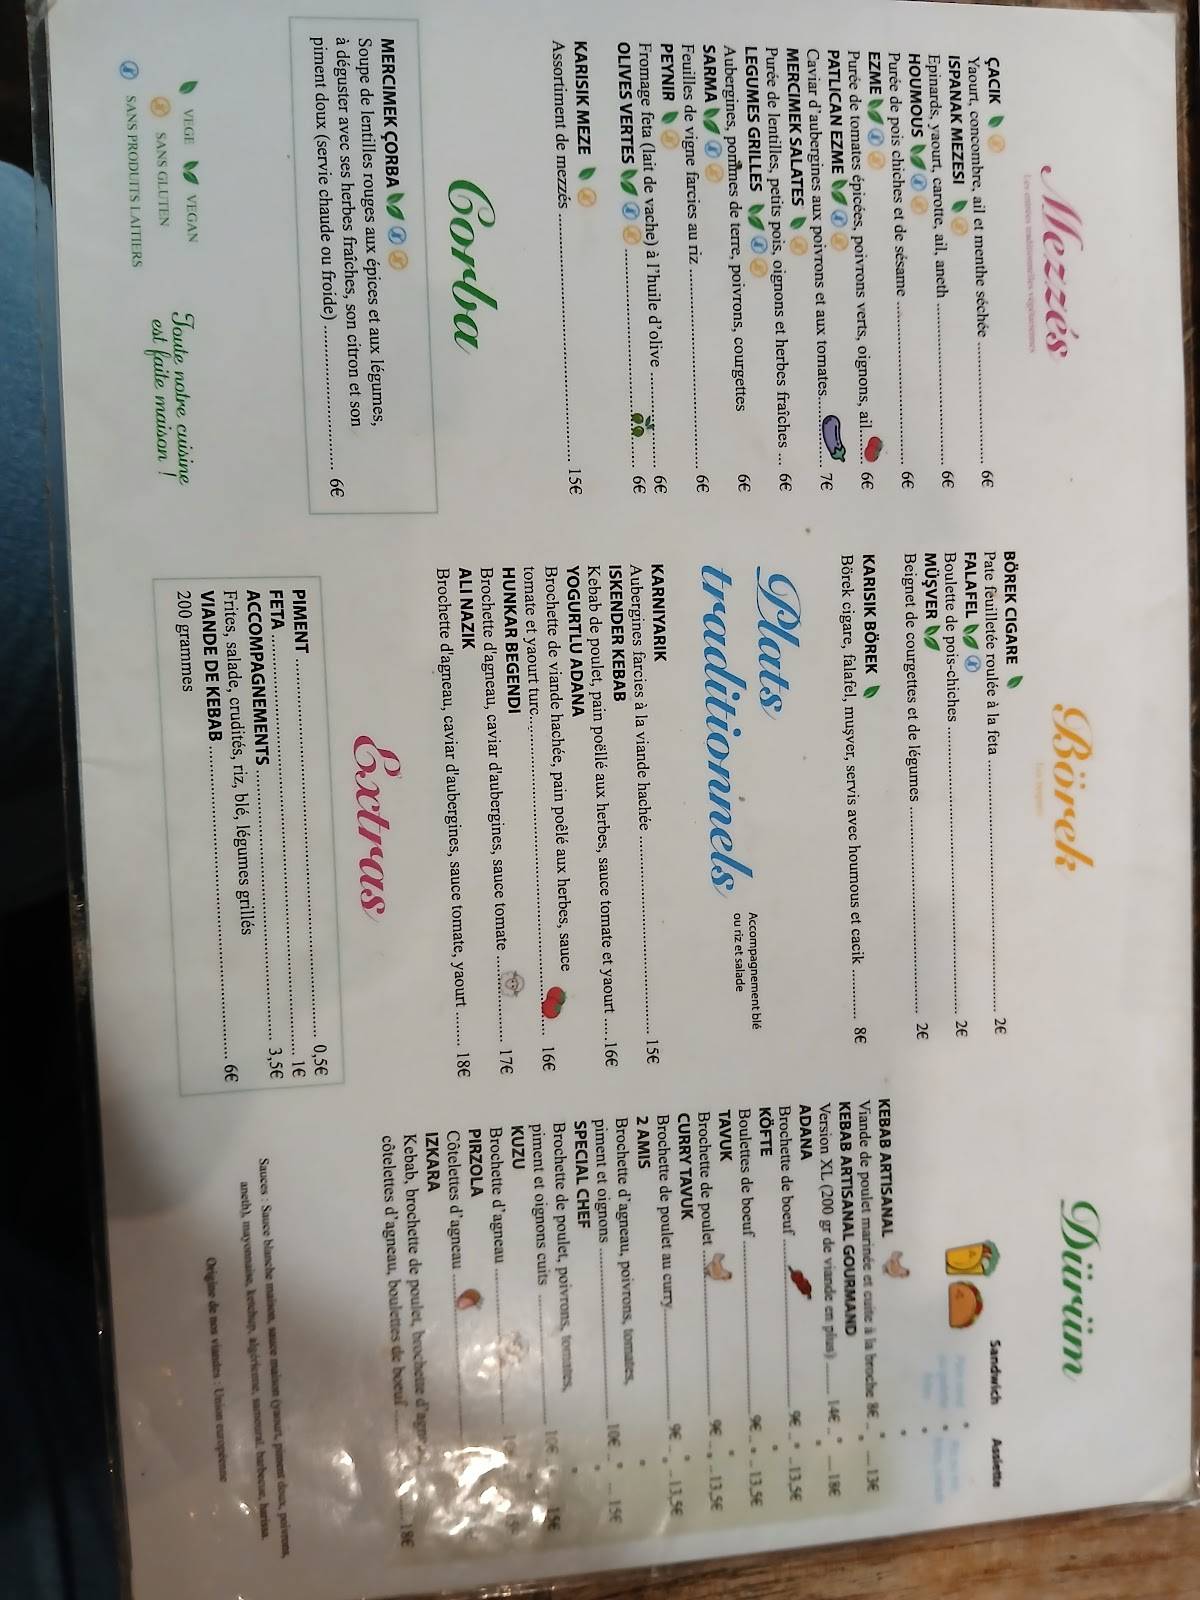 Mezzés
Les entrées traditionnelles végétariennes
ÇACIK
Yaourt, concombre, ail et menthe séchée 6€
ISPANAK MEZESI
Epinards, yaourt, carotte, ail, aneth 6€
HOUMOUS
Purée de pois chiches et de sésame 6€
EZME
Purée de tomates épicées, poivrons verts, oignons, ail 6€
PATLICAN EZME
Caviar d'aubergines aux poivrons et aux tomates 7€
MERCIMEK SALATES
Purée de lentilles, petits pois, oignons et herbes fraîches 6€
LEGUMES GRILLES
Aubergines, pommes de terre, poivrons, courgettes 6€
SARMA
Feuilles de vigne farcies au riz 6€
PEYNIR
Fromage feta (lait de vache) à l'huile d'olive 6€
OLIVES VERTES 6€
KARISIK MEZE
Assortiment de mezzés 15€
Corba
MERCIMEK ÇORBA
Soupe de lentilles rouges aux épices et aux légumes,
à déguster avec ses herbes fraîches, son citron et son
piment doux (servie chaude ou froide) 6€
VEGE VEGAN
SANS GLUTEN
SANS PRODUITS LAITIERS
Toute notre cuisine
est faite maison !
Börek
BÖREK CIGARE
Pate feuilletée roulée à la feta 2€
FALAFEL
Boulette de pois-chiches 2€
MUŞVER
Beignet de courgettes et de légumes 2€
KARISIK BÖREK
Börek cigare, falafel, muşver, servis avec houmous et cacik 8€
Plats
traditionnels
Accompagnement blé
ou riz et salade
KARNIYARIK
Aubergines farcies à la viande hachée 15€
ISKENDER KEBAB
Kebab de poulet, pain poëllé aux herbes, sauce tomate et yaourt 16€
YOGURTLU ADANA
Brochette de viande hachée, pain poêlé aux herbes, sauce
tomate et yaourt turc 16€
HUNKAR BEGENDI
Brochette d'agneau, caviar d'aubergines, sauce tomate 17€
ALI NAZIK
Brochette d'agneau, caviar d'aubergines, sauce tomate, yaourt 18€
Extras
PIMENT 0,5€
FETA 1€
ACCOMPAGNEMENTS 3,5€
Frites, salade, crudités, riz, blé, légumes grillés
VIANDE DE KEBAB 6€
200 grammes
Dürüm
Sandwich Assiette
KEBAB ARTISANAL
Viande de poulet marinée et cuite à la broche 8€ 13€
KEBAB ARTISANAL GOURMAND
Version XL (200 gr de viande en plus) 14€ 18€
ADANA
Brochette de boeuf 9€ 13,5€
KÖFTE
Boulettes de boeuf 9€ 13,5€
TAVUK
Brochette de poulet 9€ 13,5€
CURRY TAVUK
Brochette de poulet au curry 9€ 13,5€
2 AMIS
Brochette d'agneau, poivrons, tomates,
piment et oignons 10€ 15€
SPECIAL CHEF
Brochette de poulet, poivrons, tomates,
piment et oignons cuits 10€ 15€
KUZU
Brochette d'agneau
PIRZOLA
Côtelettes d'agneau
IZKARA
Kebab, brochette de poulet, brochette
côtelettes d'agneau, boulettes de boeuf 18€
Sauces : Sauce blanche maison, sauce maison (yaourt, piment doux, poivrons,
aneth), mayonnaise, ketchup, algérienne, samouraï, barbecue, harissa.
Origine de nos viandes : Union européenne